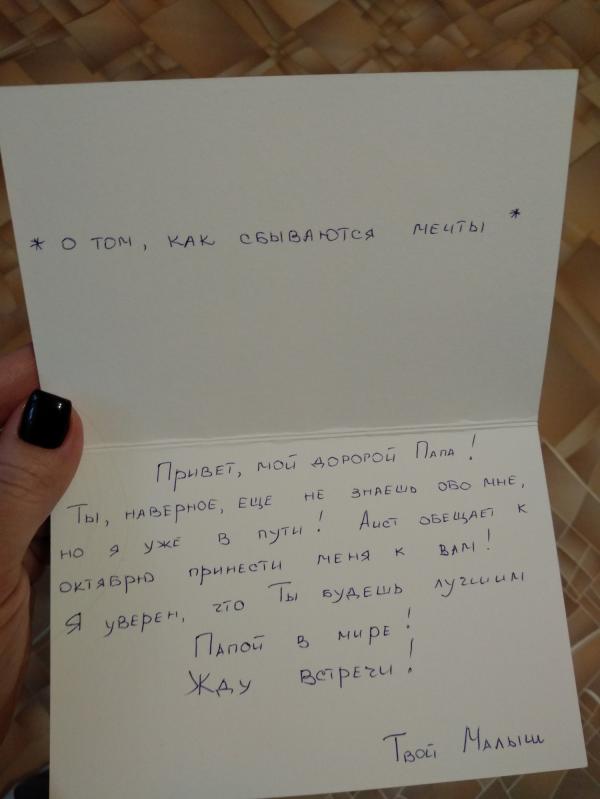 * О ТОМ, КАК СБЫВАЮТСЯ МЕЧТЫ *
Привет, мой доророй Папа!
Ты, наверное, еще не знаешь обо мне,
но я уже в пути! Аист обещает к
октябрю принести меня к вам!
Я уверен, что Ты будешь лучшим
Папой в мире!
Жду встречи!
Твой Малыш